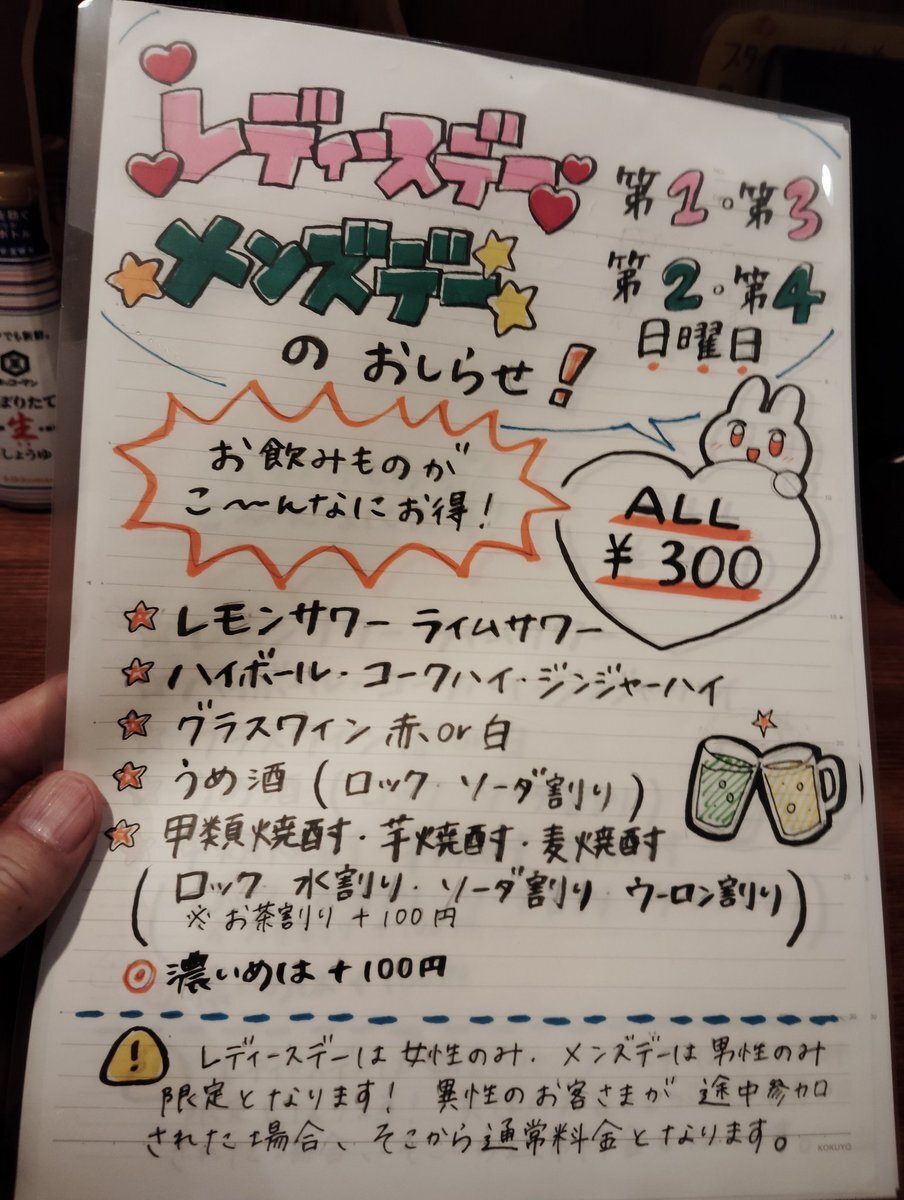 レディースデー 第1・第3
メンズデー 第2・第4
日曜日
の おしらせ!
お飲みものが
こ〜〜んなにお得!
ALL
¥300
レモンサワー ライムサワー
ハイボール・コークハイ・ジンジャーハイ
グラスワイン 赤or白
うめ酒 (ロック ソーダ割り)
甲類焼酎・芋焼酎・麦焼酎
(ロック 水割り・ソーダ割り ウーロン割り)
※お茶割り +100円
◎濃いめは +100円
! レディースデーは女性のみ. メンズデーは男性のみ
限定となります! 異性のお客さまが 途中参加
された場合、そこから通常料金となります。
KOKUYO
でも新鮮。
ぼりたて
生
しょうゆ
kikkoman